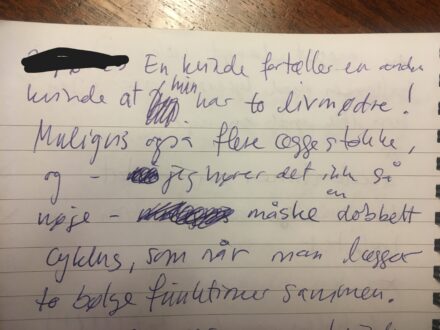 En kvinde fortæller en anden
kvinde at hun har to livmødre!
Muligvis også flere æggestokke,
og - jeg hører det ikk så
nøje - måske en dobbelt
cyklus, som når man lægger
to bølge funktioner sammen.